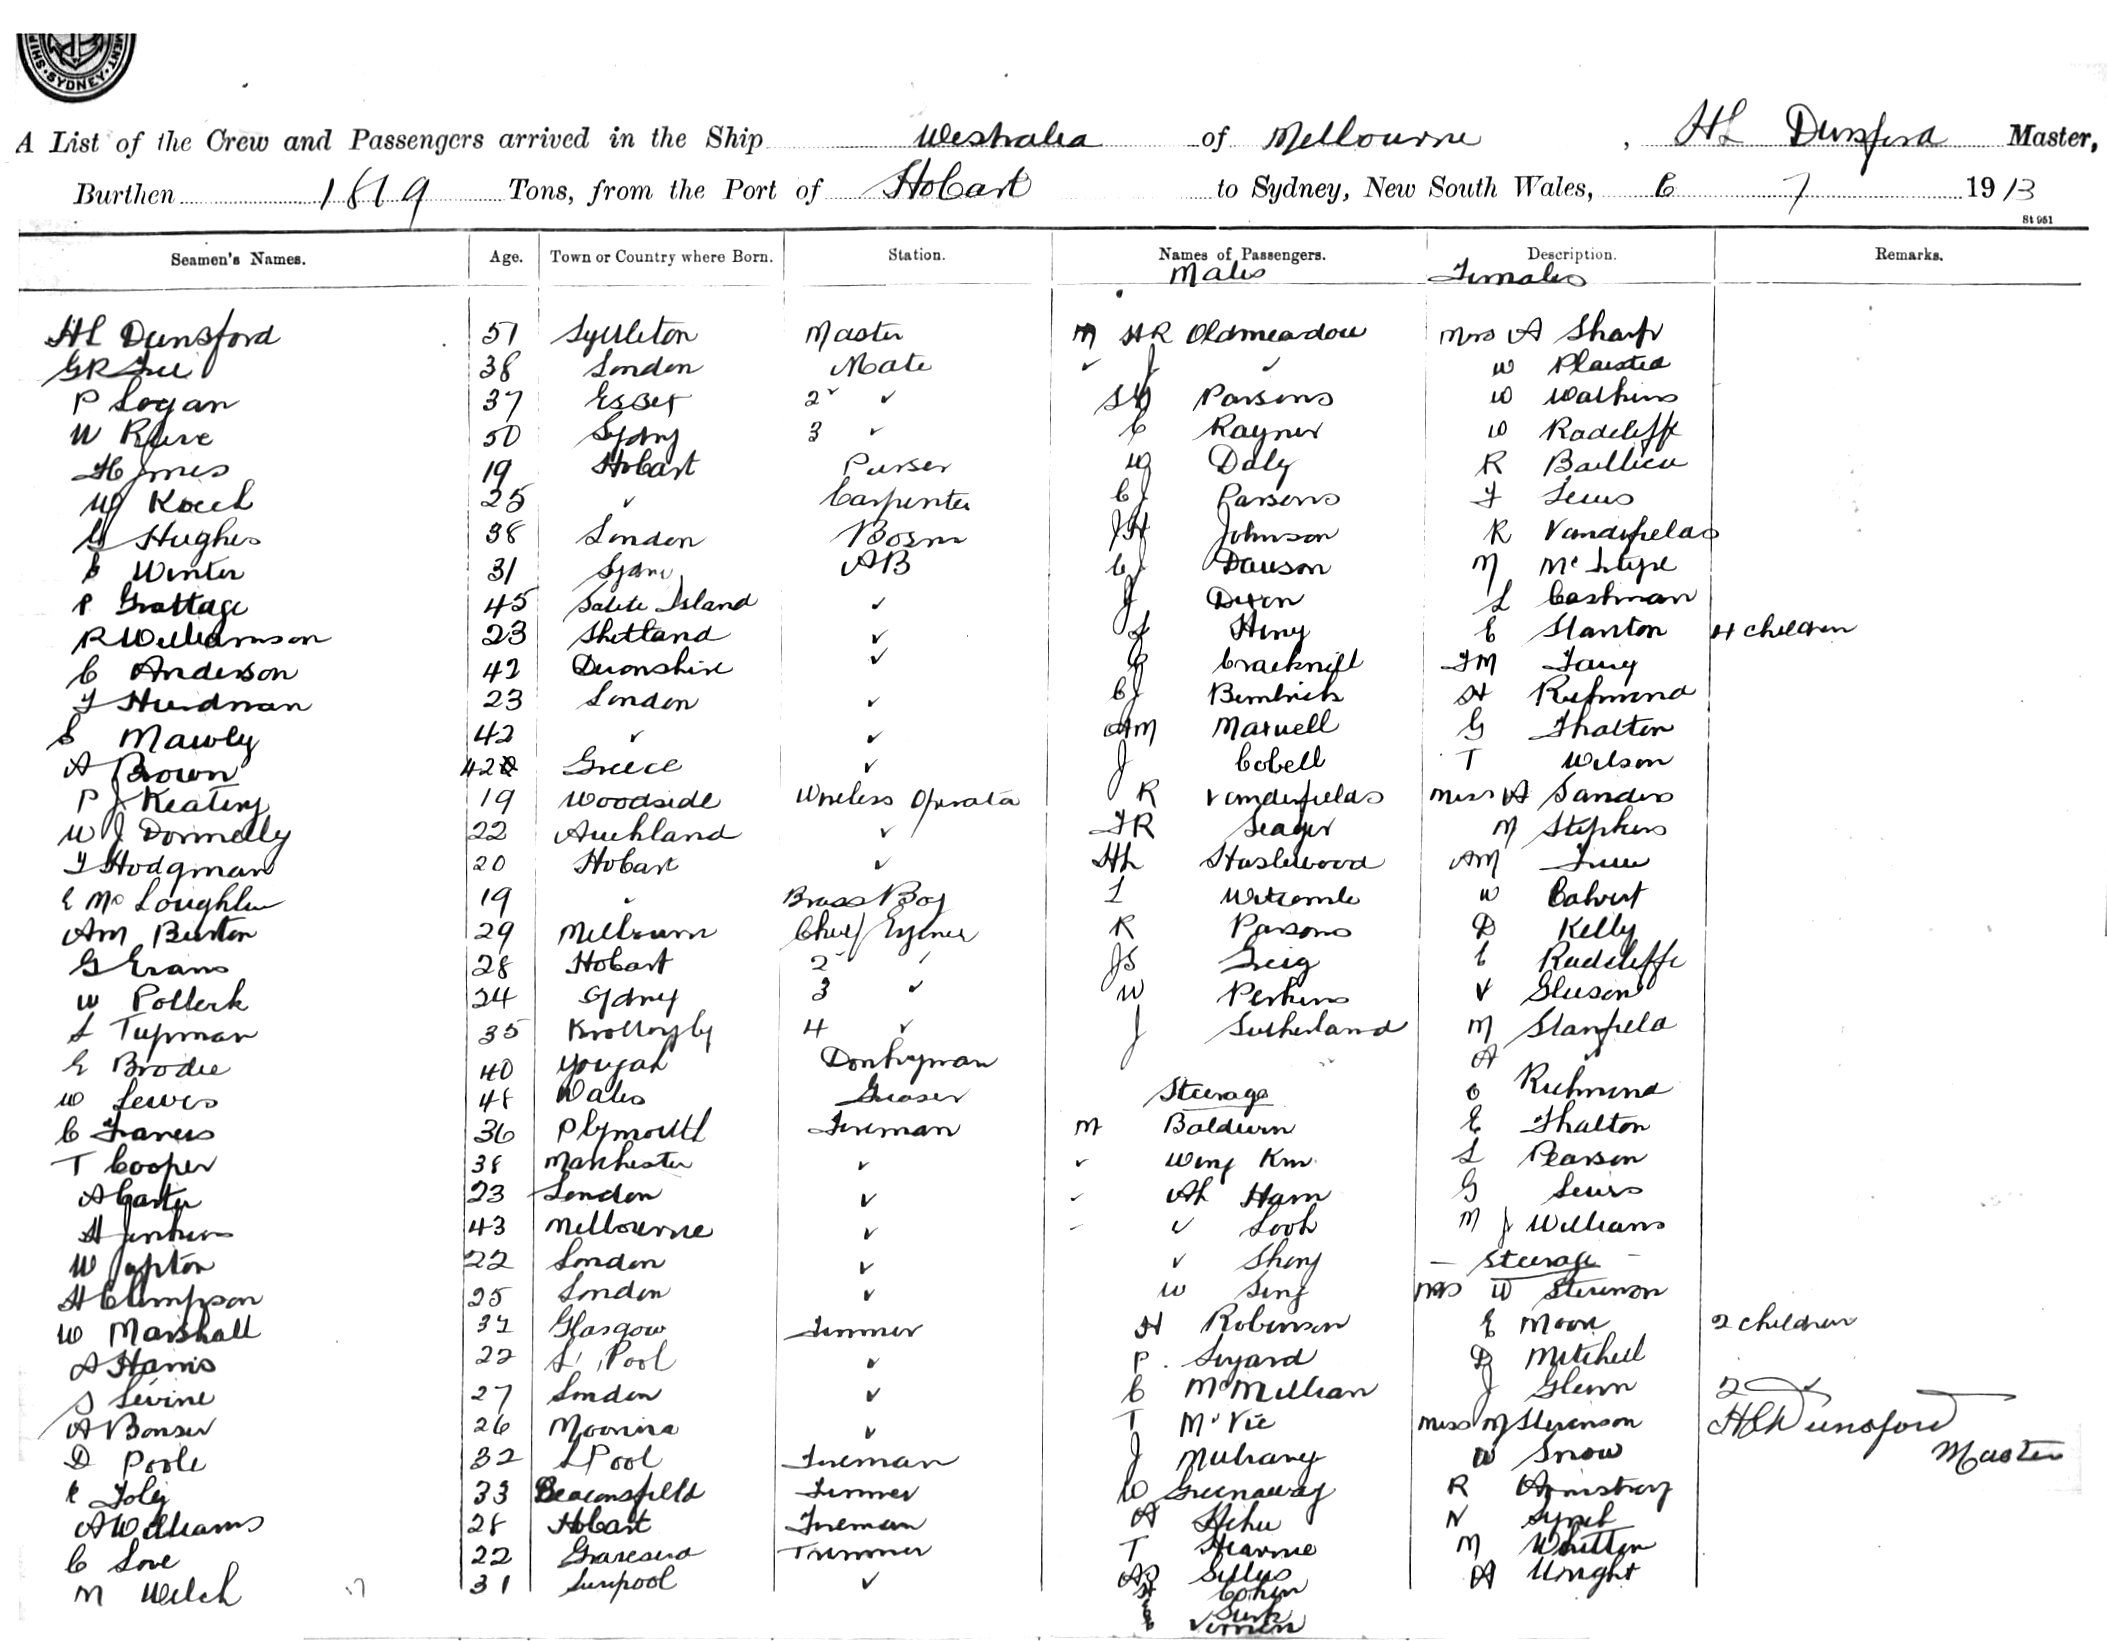 SHIP
SYDNEY
MENT
A List of the Crew and Passengers arrived in the Ship Westralia of Melbourne, HL Dunsford Master,
Burthen 1819 Tons, from the Port of Hobart to Sydney, New South Wales, 6 7 1913
St 951
Seamen's Names. Age. Town or Country where Born. Station. Names of Passengers. Description. Remarks.
Males Females
HL Dunsford 51 Master M HR Oldmeadow Mrs A Sharp
GR 38 London Mate ✓ J ✓ W Plaisted
P Logan 37 Essex 2 ✓ Parsons W Watkins
W 50 Sydney 3 ✓ C Rayner W Radcliffe
H Jones 19 Hobart Purser W Daly R Baillieu
W Keech 25 ✓ Carpenter CJ Parsons F Lewis
G Hughes 38 London Bosm JH Johnson R Vanderfields
E Winter 31 AB CJ Dawson M McIntyre
P Grattage 45 Island ✓ J Dixon L Cashman
R Williamson 23 Shetland ✓ Heny E Stanton 4 children
C Anderson 42 Devonshire ✓ Cracknell FM
F Hurdman 23 London ✓ CJ H Richmond
S Mawly 42 ✓ ✓ AM Maxwell G Thalton
A Brown 42 Greece ✓ J Cobell T Wilson
P J Keating 19 Woodside Wireless Operata R Vanderfields Miss A Sanders
W J Donnelly 22 Auckland ✓ FR Seager M Stephens
F Hodgman 20 Hobart ✓ HL Haslewood AM
E McLoughlin 19 ✓ Brass Boy L Witcomb W Calvert
AM Burton 29 Melbourne Chief R Parsons D Kelly
G Evans 28 Hobart 2 ✓ JS Greig E Radcliffe
W Pollock 24 Sydney 3 ✓ W Perkins V Gleeson
S Tupman 35 4 ✓ J Sutherland M Stanfield
E Brodie 40 Donkeyman A ✓
W Lewis 48 Wales Greaser Steerage O Richmond
C Francis 36 Plymouth Fireman M Baldwin E Thalton
T Cooper 38 Manchester ✓ ✓ Wing L Pearson
A Carter 23 London ✓ Ah Ham G Lewis
H Jenkins 43 Melbourne ✓ ✓ Look M J Williams
W Upton 22 London ✓ ✓ Shong - Steerage -
H Climpson 25 London ✓ W Sing Mrs W Stevenson
W Marshall 37 Glasgow Trimmer H Robinson E Moon 2 children
A Harris 22 L' Pool ✓ P. D Mitchell
S Levine 27 London ✓ C McMillian J Glenn 2 ✓
A Bonser 26 Moonina ✓ T McVie Miss M Stevenson HL Dunsford
D Poole 32 L Pool Fireman J Mulrany W Snow Master
E Foley 33 Beaconsfield Trimmer W Greenaway R Armstrong
A Williams 28 Hobart Fireman A N
C Love 22 Gravesend Trimmer T Hearne M Whitton
M Welch 31 Liverpool ✓ A Wright
Cohen
Vernon